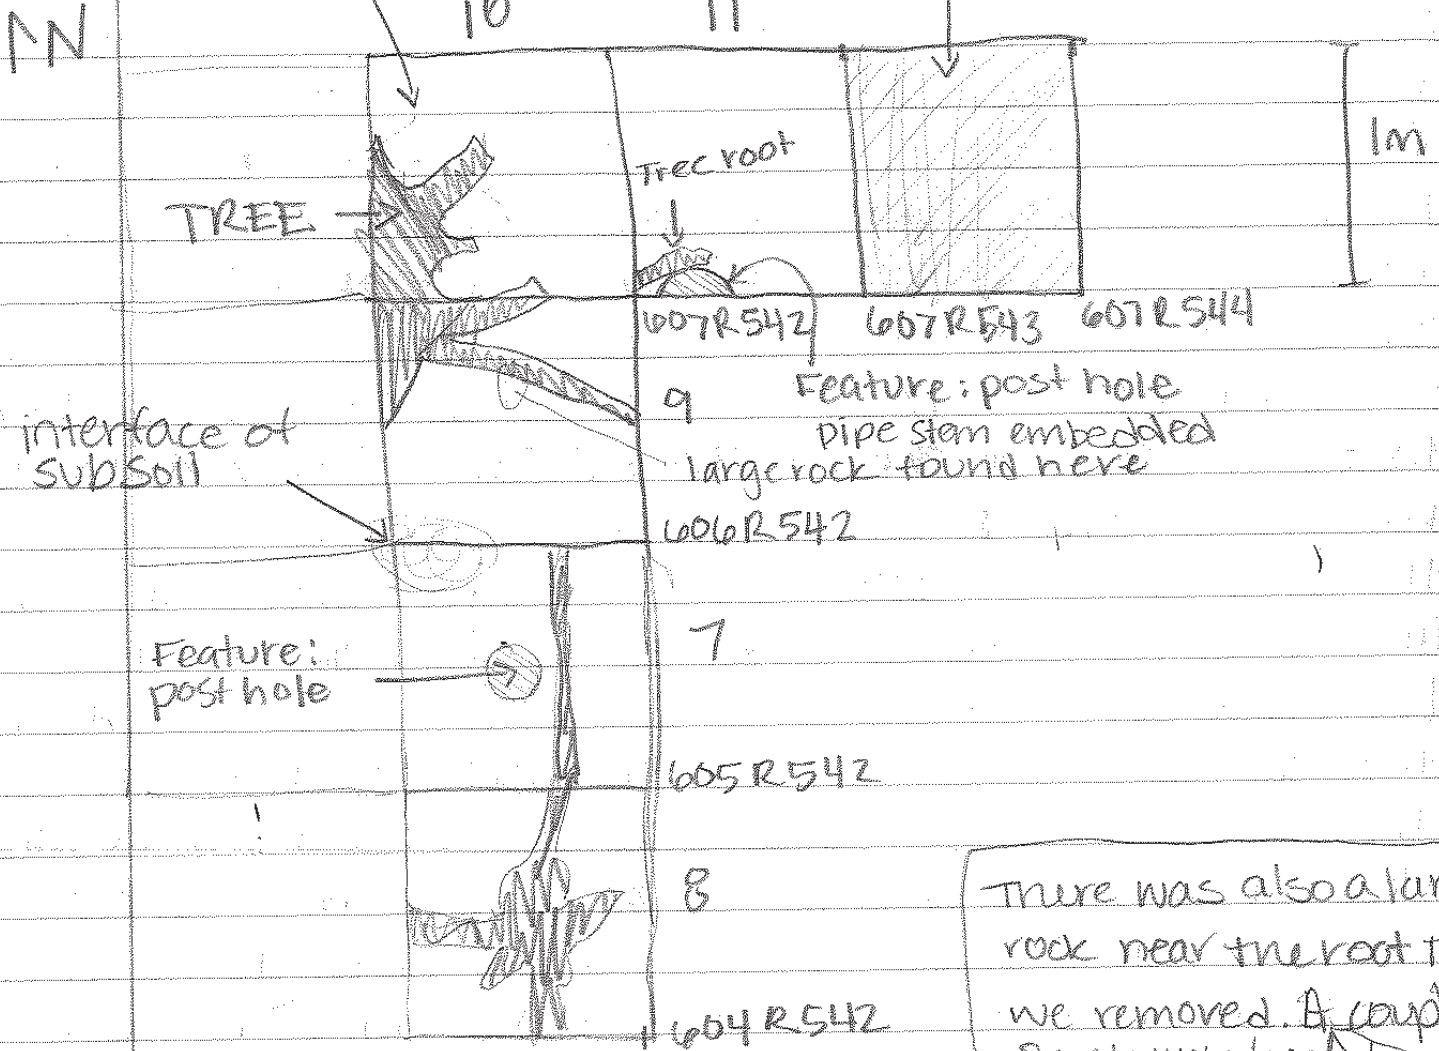 N
10
11
1m
Tree root
TREE
607R542
607R543
607R544
Feature: post hole
pipe stem embedded
9
large rock found here
interface of
subsoil
606R542
7
Feature:
post hole
605R542
8
There was also a lar
rock near the root t
we removed. A coup
604R542